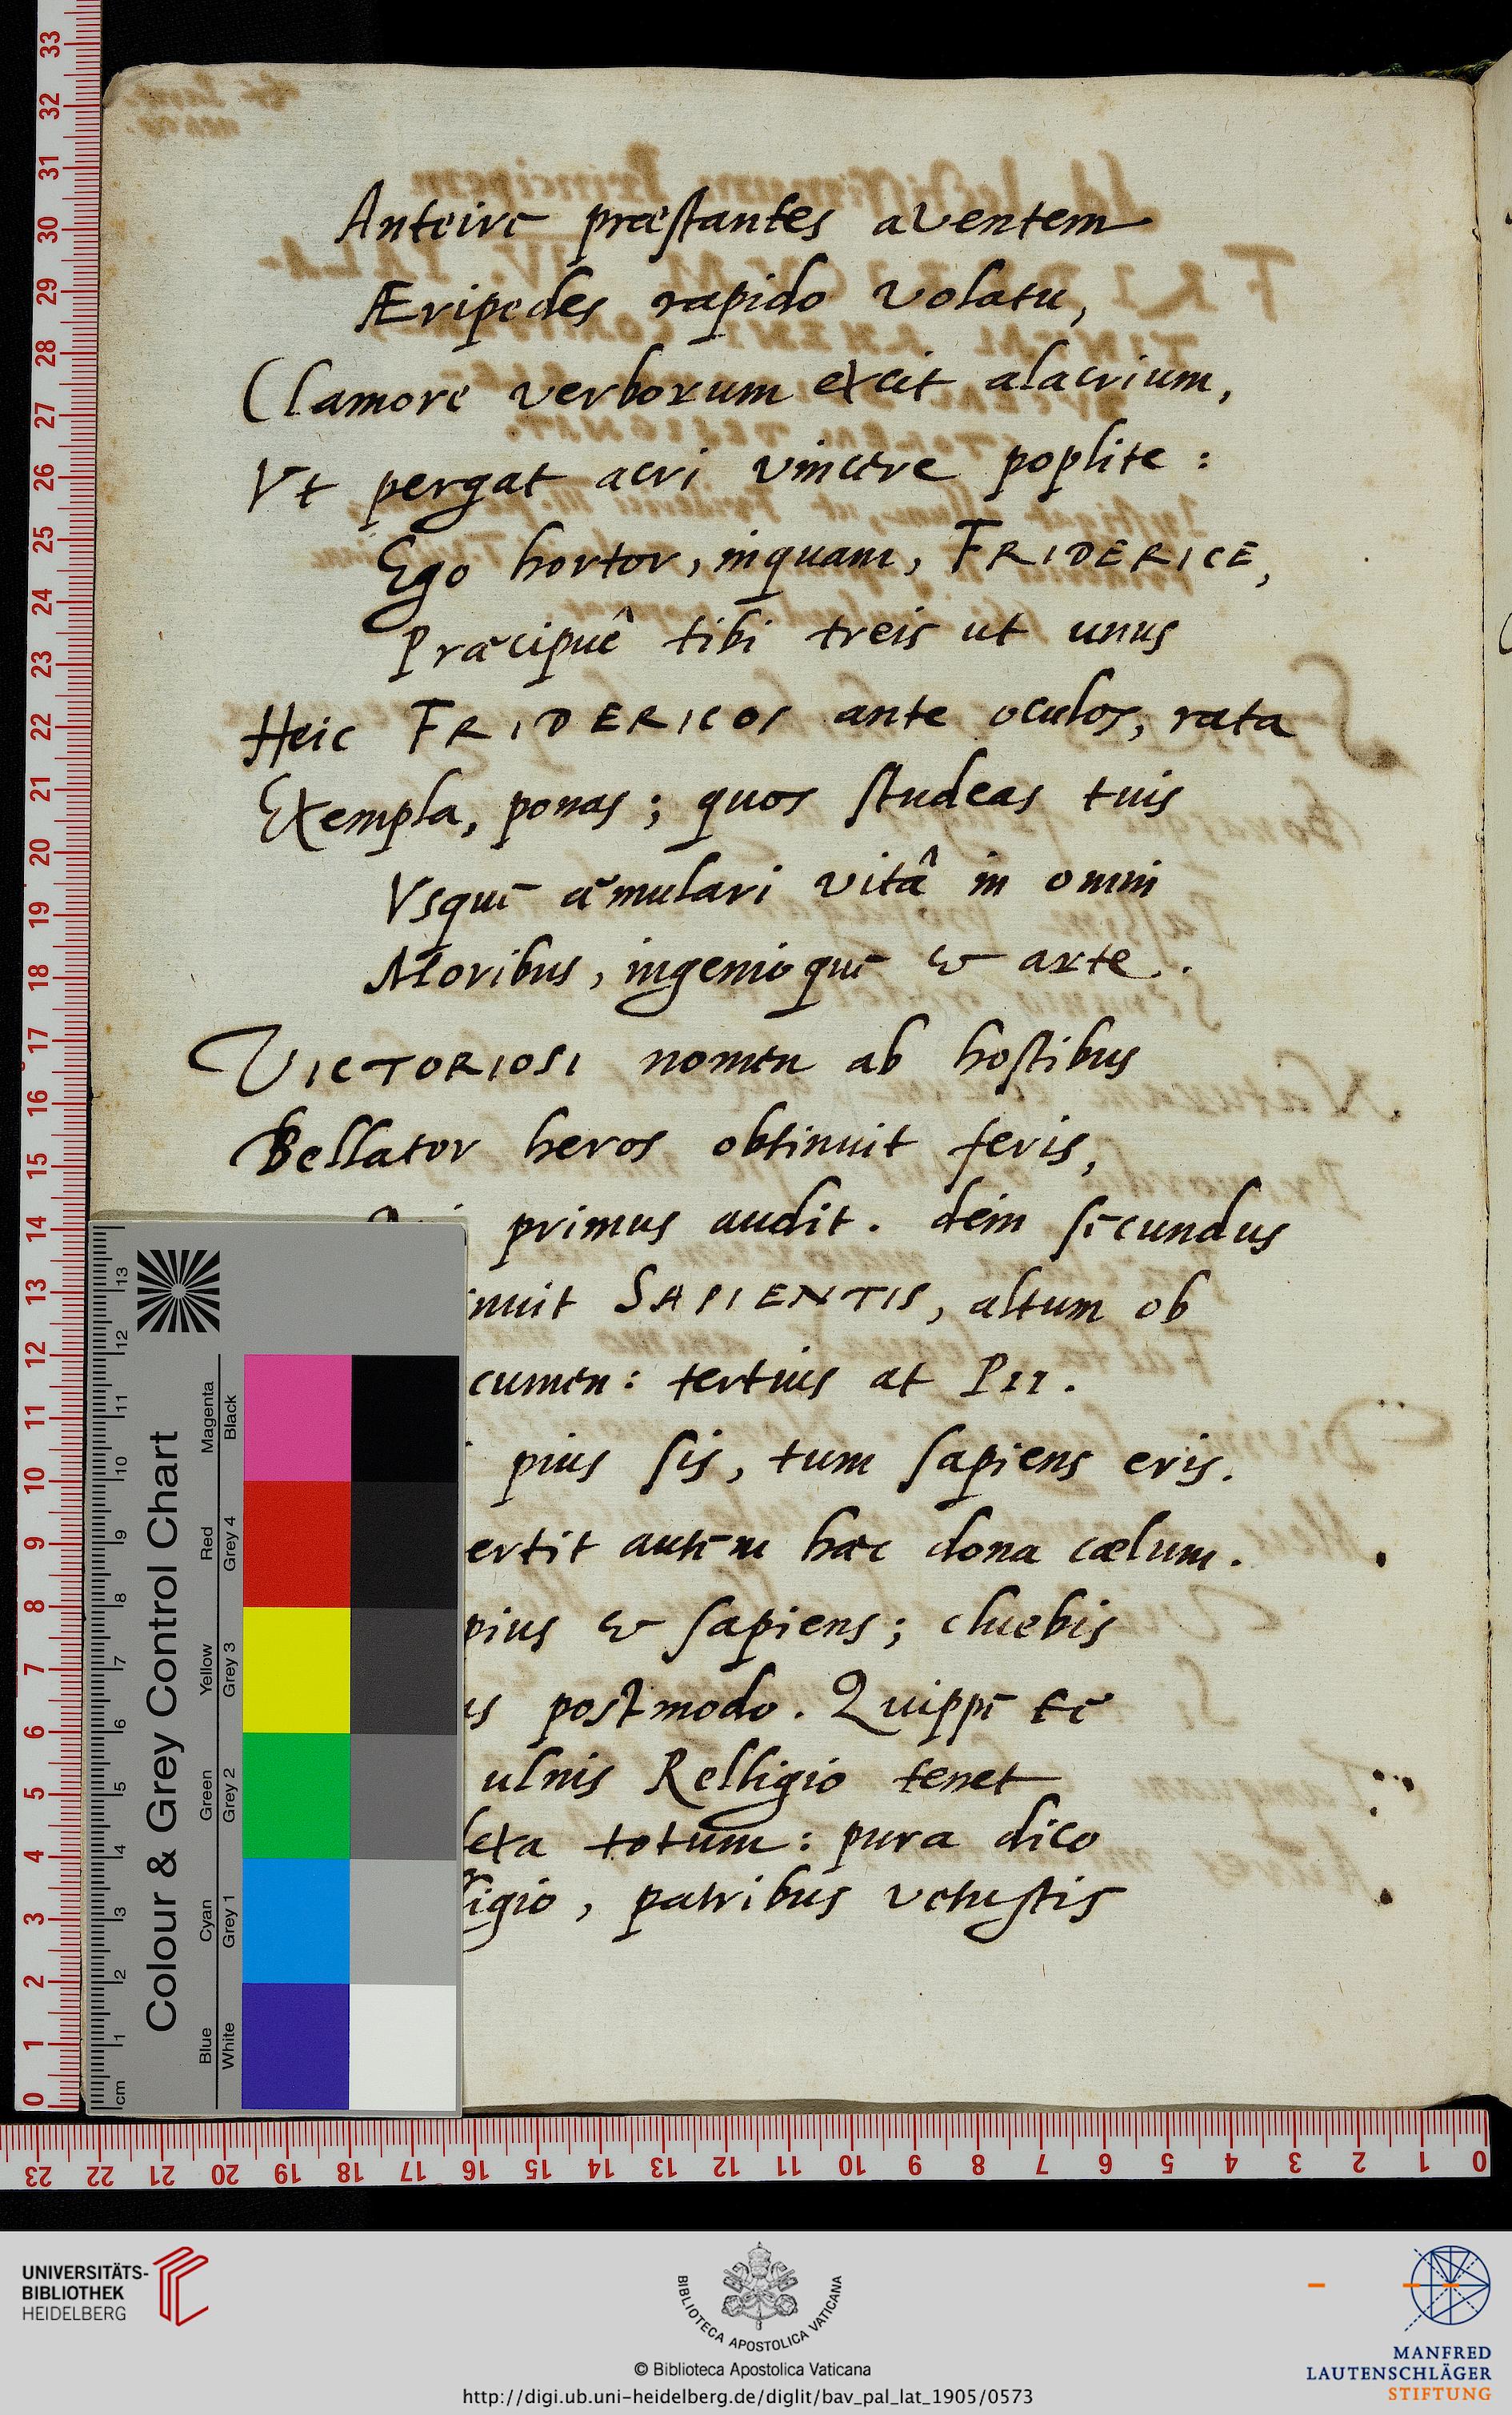 Anteire præstantes aventem
Æripedes rapido volatu,
Clamore verborum excit alacrium,
Vt pergat acri vincere poplite:
Ego hortor, inquam, FRIDERICE,
Præcipuê tibi treis ut unus
Heic FRIDERICOS ante oculos, rata
Exempla, ponas; quos studeas tuis
Vsque æmulari vitâ in omni
Moribus, ingenioque & arte.
VICTORIOSI nomen ab hostibus
Bellator heros obtinuit feris,
primus audit. dein secundus
inuit SAPIENTIS, altum ob
cumen: tertius at PII.
pius sis, tum sapiens eris.
ertit autem hæc dona cælum.
pius & sapiens; cluebis
us postmodo. Quippe te
ulnis Relligio tenet
lexa totum: pura dico
ligio, patribus vetustis
Colour & Grey Control Chart
Blue Cyan Green Yellow Red Magenta
White Grey 1 Grey 2 Grey 3 Grey 4 Black
cm 1 2 3 4 5 6 7 8 9 10 11 12 13
33 32 31 30 29 28 27 26 25 24 23 22 21 20 19 18 17 16 15 14 13 12 11 10 9 8 7 6 5 4 3 2 1 0
23 22 21 20 19 18 17 16 15 14 13 12 11 10 9 8 7 6 5 4 3 2 1 0
UNIVERSITÄTS-
BIBLIOTHEK
HEIDELBERG
BIBLIOTECA APOSTOLICA VATICANA
© Biblioteca Apostolica Vaticana
http://digi.ub.uni-heidelberg.de/diglit/bav_pal_lat_1905/0573
MANFRED
LAUTENSCHLÄGER
STIFTUNG